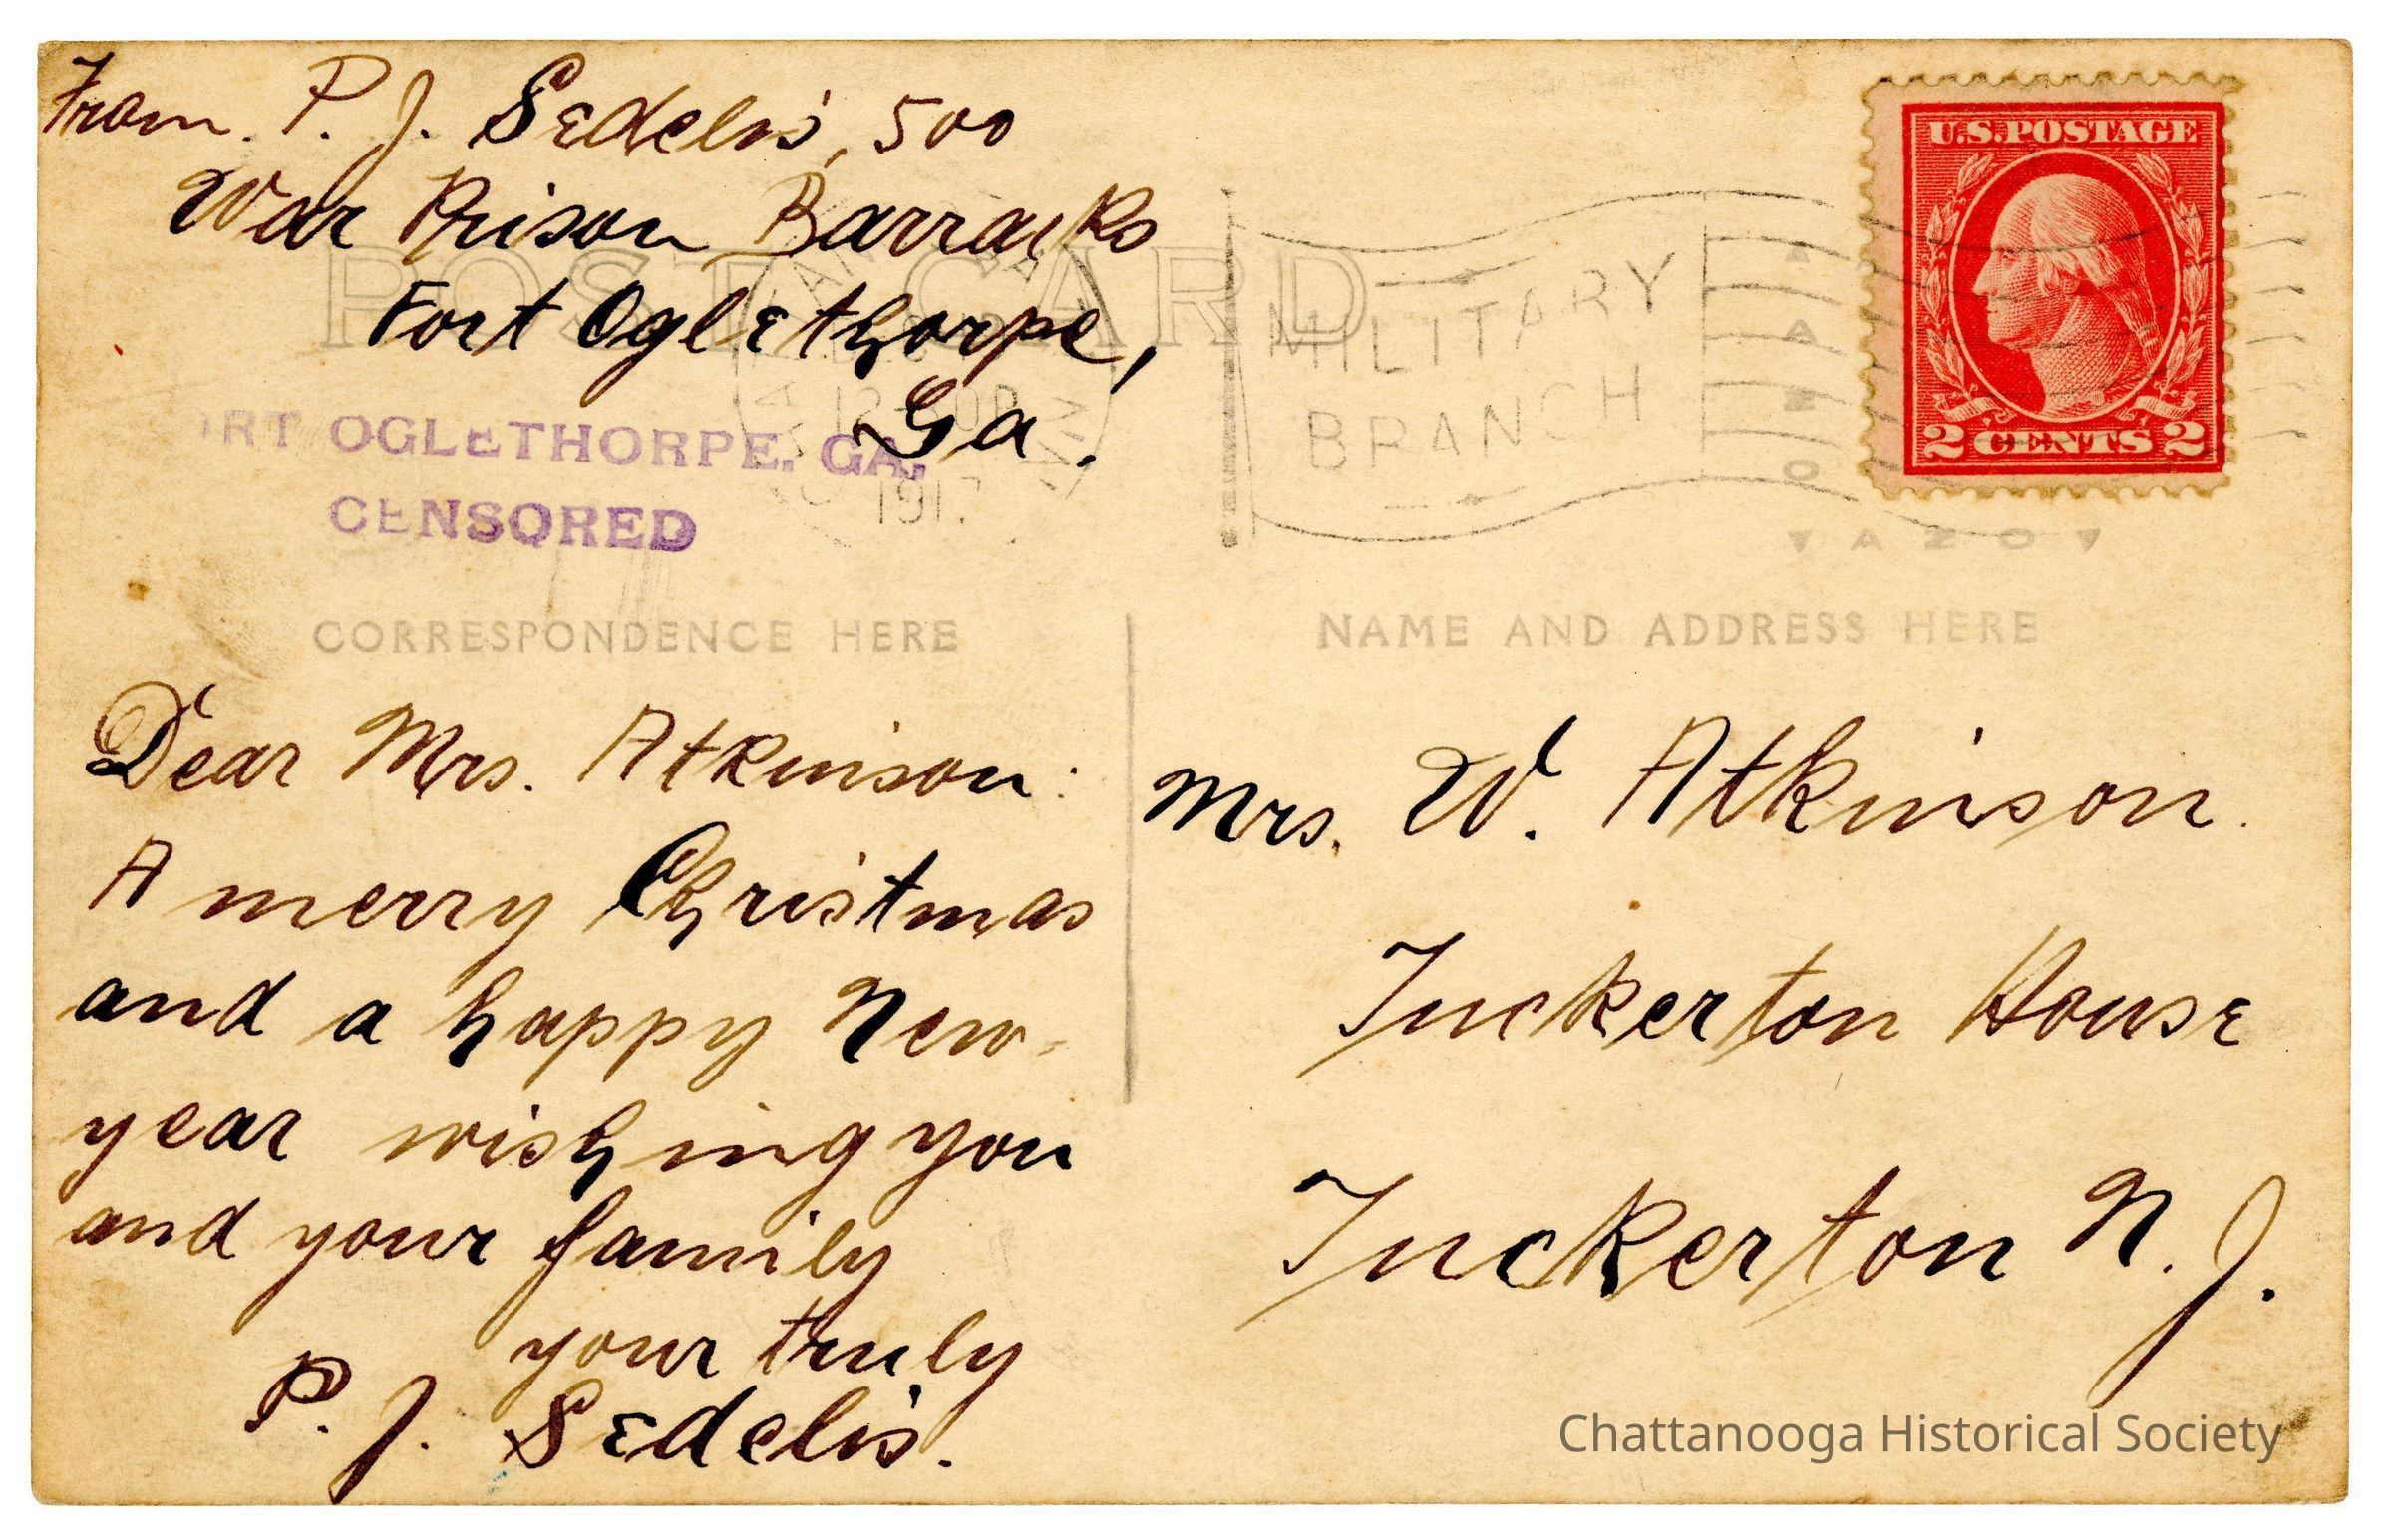 From. P. J. Sedelis, 500
War Prison Barracks
Fort Oglethorpe,
Ga.
POST CARD
MILITARY
BRANCH
1917
U.S. POSTAGE
2 CENTS 2
AZO
AZO
ORT OGLETHORPE. GA.
CENSORED
CORRESPONDENCE HERE
NAME AND ADDRESS HERE
Dear Mrs. Atkinson:
A merry Christmas
and a happy New-
year wishing you
and your family
your truly
P. J. Sedelis.
Mrs. W. Atkinson.
Tuckerton House
Tuckerton N. J.
Chattanooga Historical Society